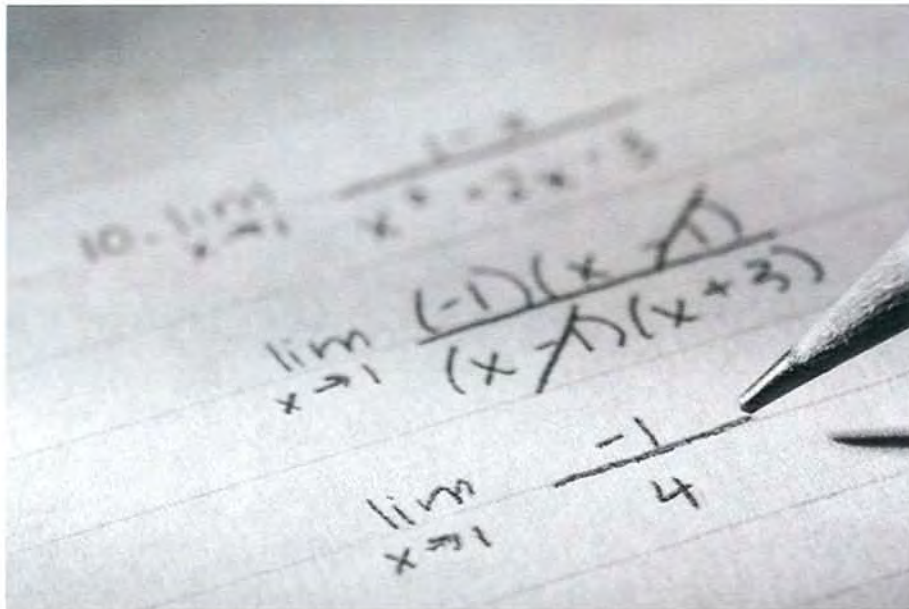 10. lim x→1 1-x / x² - 2x - 3
lim x→1 (-1)(x-1) / (x-1)(x+3)
lim x→1 -1 / 4